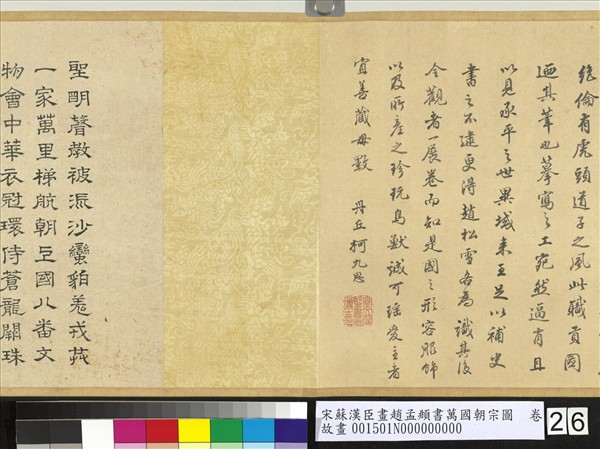 絶倫有虎頭道子之風此職貢圖
迺其筆也摹寫之工宛然逼肖且
以見承平之世異域來王足以補史
書之不逮更得趙松雪各為識其後
令觀者一展卷而知是國之形容服飾
以及所產之珍玩鳥獸誠可瑶愛主者
宜善藏毋斁 丹丘柯九思
聖明聲教被流沙蠻貊羌戎莪
一家萬里梯航朝玉國八番文
物會中華衣冠環侍蒼龍闕珠
宋蘇漢臣畫趙孟頫書萬國朝宗圖 卷
故畫 001501N000000000
26